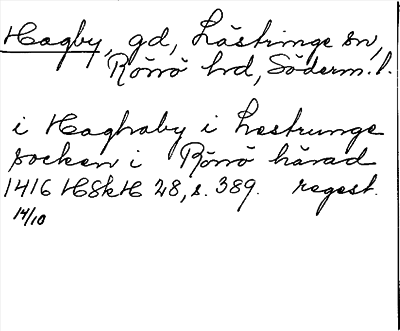 Hagby, gd, Lästringe sn,
Rönö hd, Söderm. l.
i Haghaby i Lestrunge
socken i Rönö härad
1416 HSkH 28, s. 389. regest.
14/10